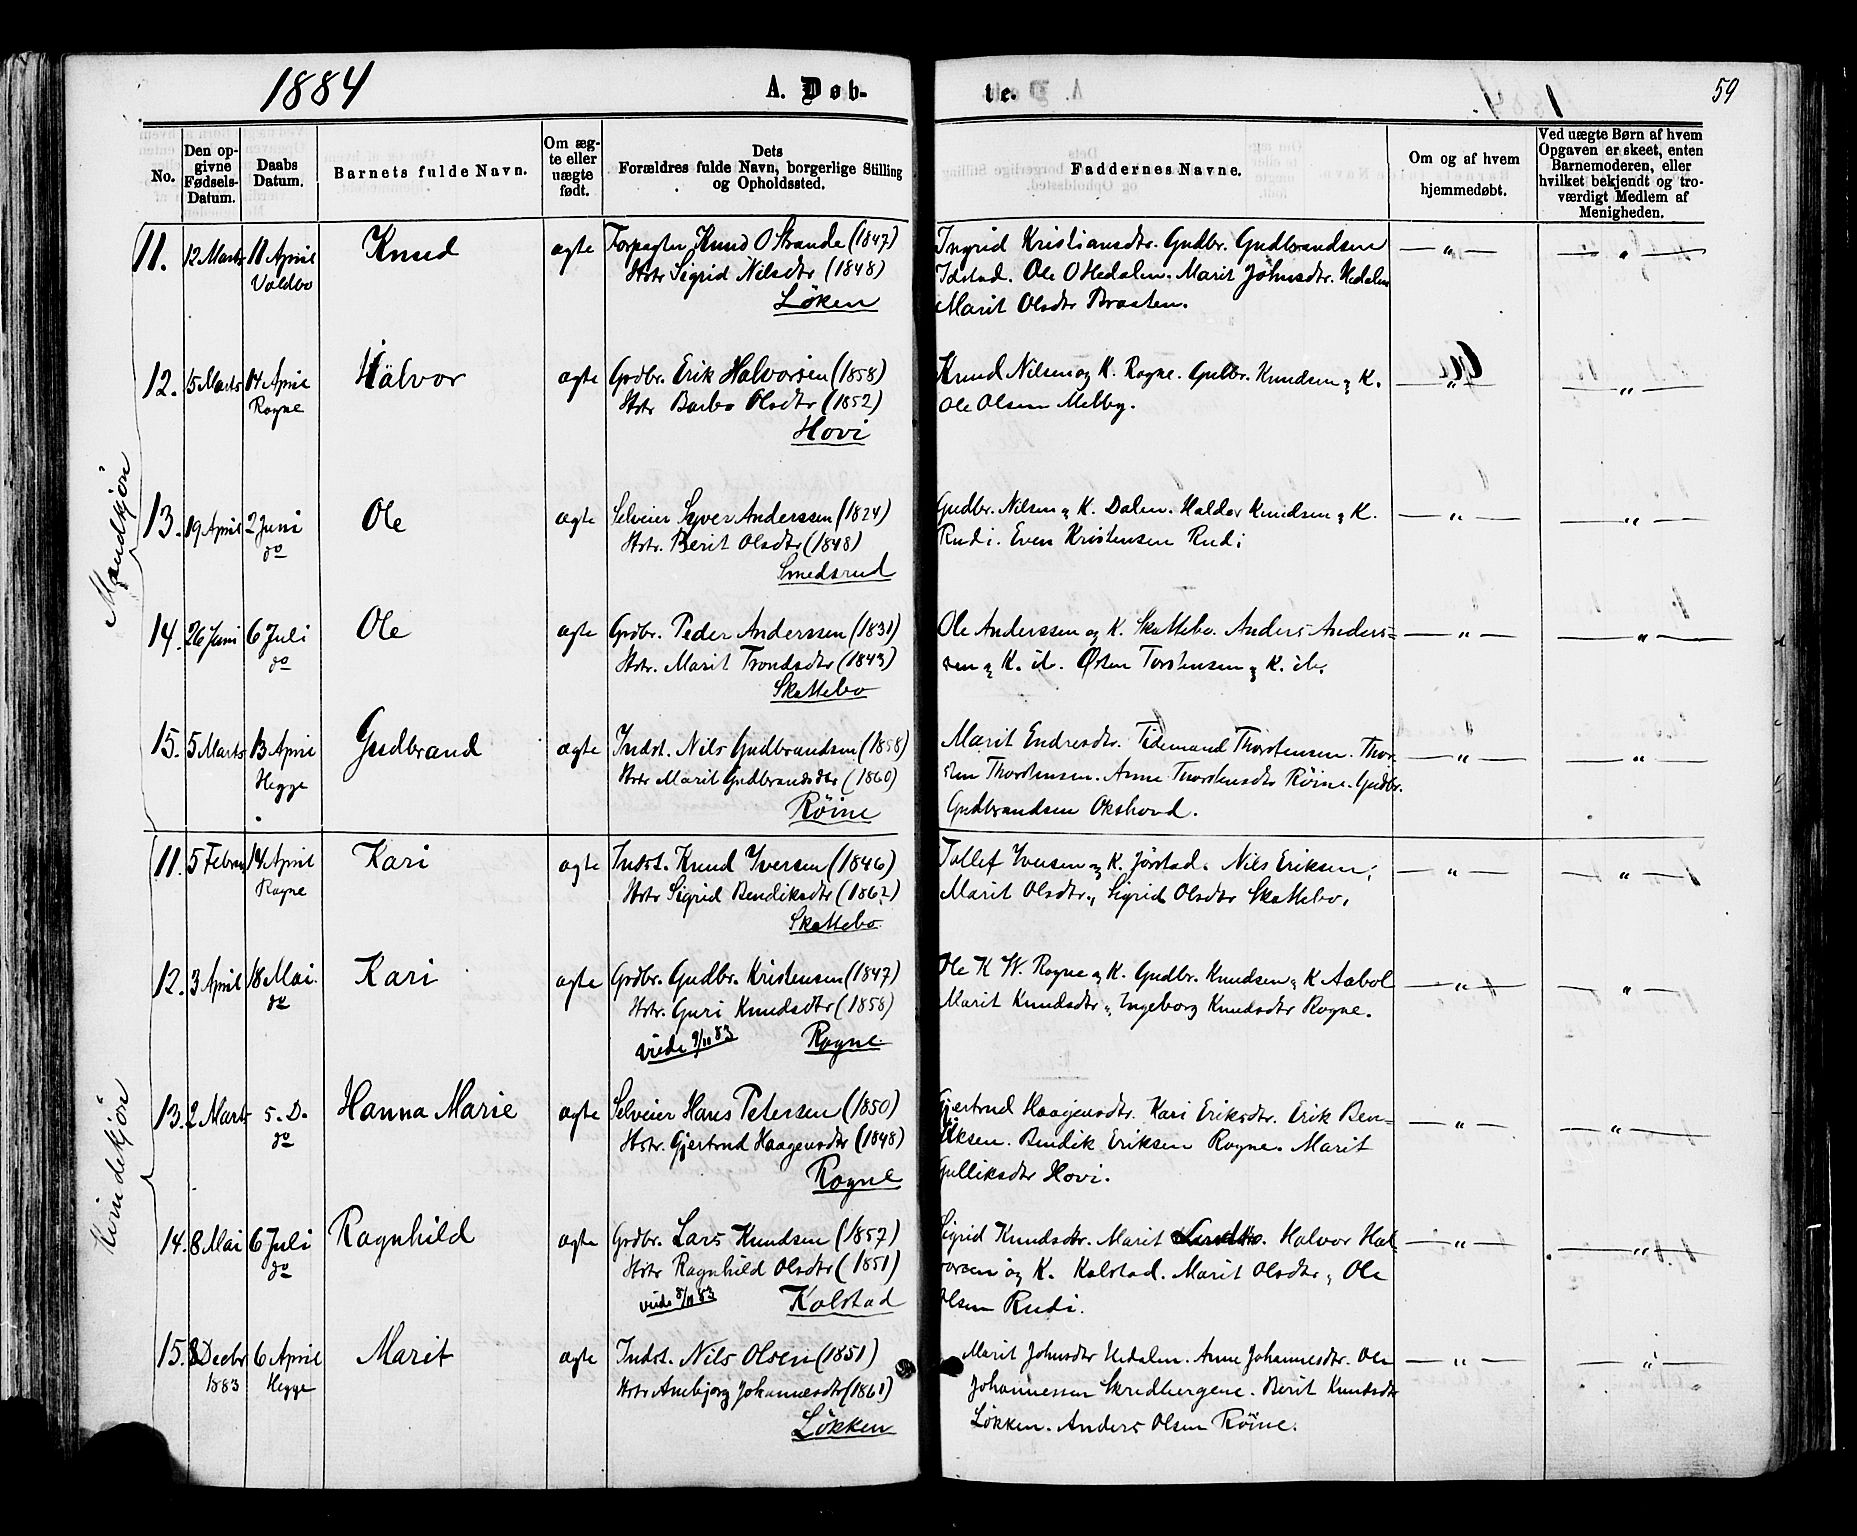 1884
A. Døb-
te.
59
No.
Den op-
givne
Fødsels-
Datum.
Daabs
Datum.
Barnets fulde Navn.
Om æg-
te eller
uægte
født.
Dets
Forældres fulde Navn, borgerlige Stilling
og Opholdssted.
Faddernes Navne.
Om og af hvem
hjemmedøbt.
Ved uægte Børn af hvem
Opgaven er skeet, enten
Barnemoderen, eller
hvilket bekjendt og tro-
værdigt Medlem af
Menigheden.
Mandkjön
11. 12 Marts 11 April Knud ægte Forpagter Knud O Strande (1847) Ingrid Kristiansdtr. Gudbr. Gudbrandsen — „ — — „ —
Valdbo Hstr Sigrid Nilsdtr (1848) Idstad. Ole O Hedalen. Marit Johnsdtr. Hedalen
Løken Marit Olsdtr Braaten.
12. 15 Marts 14 April Halvor ægte Grdbr. Erik Halvorsen (1858) Knud Nilsen og K. Rogne. Gulbr. Knudsen & K. — „ — — „ —
Rogne Hstr Barbo Olsdtr (1852) Ole Olsen Melby.
Hovi
13. 19 April 2 Juni Ole ægte Selveier Syver Anderssen (1824) Gudbr. Nilsen & K. Dalen. Haldor Knudsen & K. — „ — — „ —
do Hstr. Berit Olsdtr (1848) Rudi. Even Kristensen Rudi
Smedsrud
14. 26 Juni 6 Juli Ole ægte Grdbr. Peder Anderssen (1831) Ole Anderssen og K. Skattebo. Anders Anders= — „ — — „ —
do Hstr. Marit Trondsdtr (1843) sen & K. ib. Østen Torstensen & K. ib.
Skattebo
15. 5 Marts 13 April Gudbrand ægte Indst. Nils Gudbrandsen (1858) Marit Endresdtr. Tidemand Thorstensen. Thor- — „ — — „ —
Hegge Hstr Marit Gudbrandsdtr (1860) sten Thorstensen. Anne Thorstensdtr Röine. Gudbr.
Röine Gudbrandsen Okshovd.
Kvindekjön
11. 5 Februar 14 April Kari ægte Indst. Knud Iversen (1846) Tollef Iversen & K. Jørstad. Nils Eriksen, — „ — — „ —
Rogne Hstr Sigrid Bendiksdtr (1862) Marit Olsdtr, Sigrid Olsdtr Skattebo.
Skattebo
12. 3 April 18 Mai Kari ægte Grdbr. Gudbr. Kristensen (1847) Ole K W. Rogne & K. Gudbr. Knudsen & K Aabol — „ — — „ —
do Hstr. Guri Knudsdtr (1858) Marit Knudsdtr, Ingeborg Knudsdtr Rogne.
viede 9/11 83 Rogne
13. 2 Marts 5. D. Hanna Marie ægte Selveier Hans Petersen (1850) Gjertrud Haagensdtr. Kari Eriksdtr. Erik Ben= — „ — — „ —
do Hstr. Gjertrud Haagensdtr (1848) diksen. Bendik Eriksen Rogne. Marit
Rogne Gulliksdtr Hovi.
14. 8 Mai 6 Juli Ragnhild ægte Grdbr. Lars Knudsen (1857) Sigrid Knudsdtr. Marit Halvor Hal- — „ — — „ —
do Hstr Ragnhild Olsdtr (1851) vorsen og K. Kolstad. Marit Olsdtr, Ole
viede 8/11 83 Kolstad Olsen Rudi.
15. 8 Decbr 6 April Marit ægte Indst. Nils Olsen (1851) Marit Johnsdtr Hedalen. Anne Johannesdtr. Ole — „ — — „ —
1883 Hegge Hstr Anebjørg Johannesdtr (1861) Johannessen Skredbergene. Berit Knudsdtr
Løkken Løkken. Anders Olsen Röine.